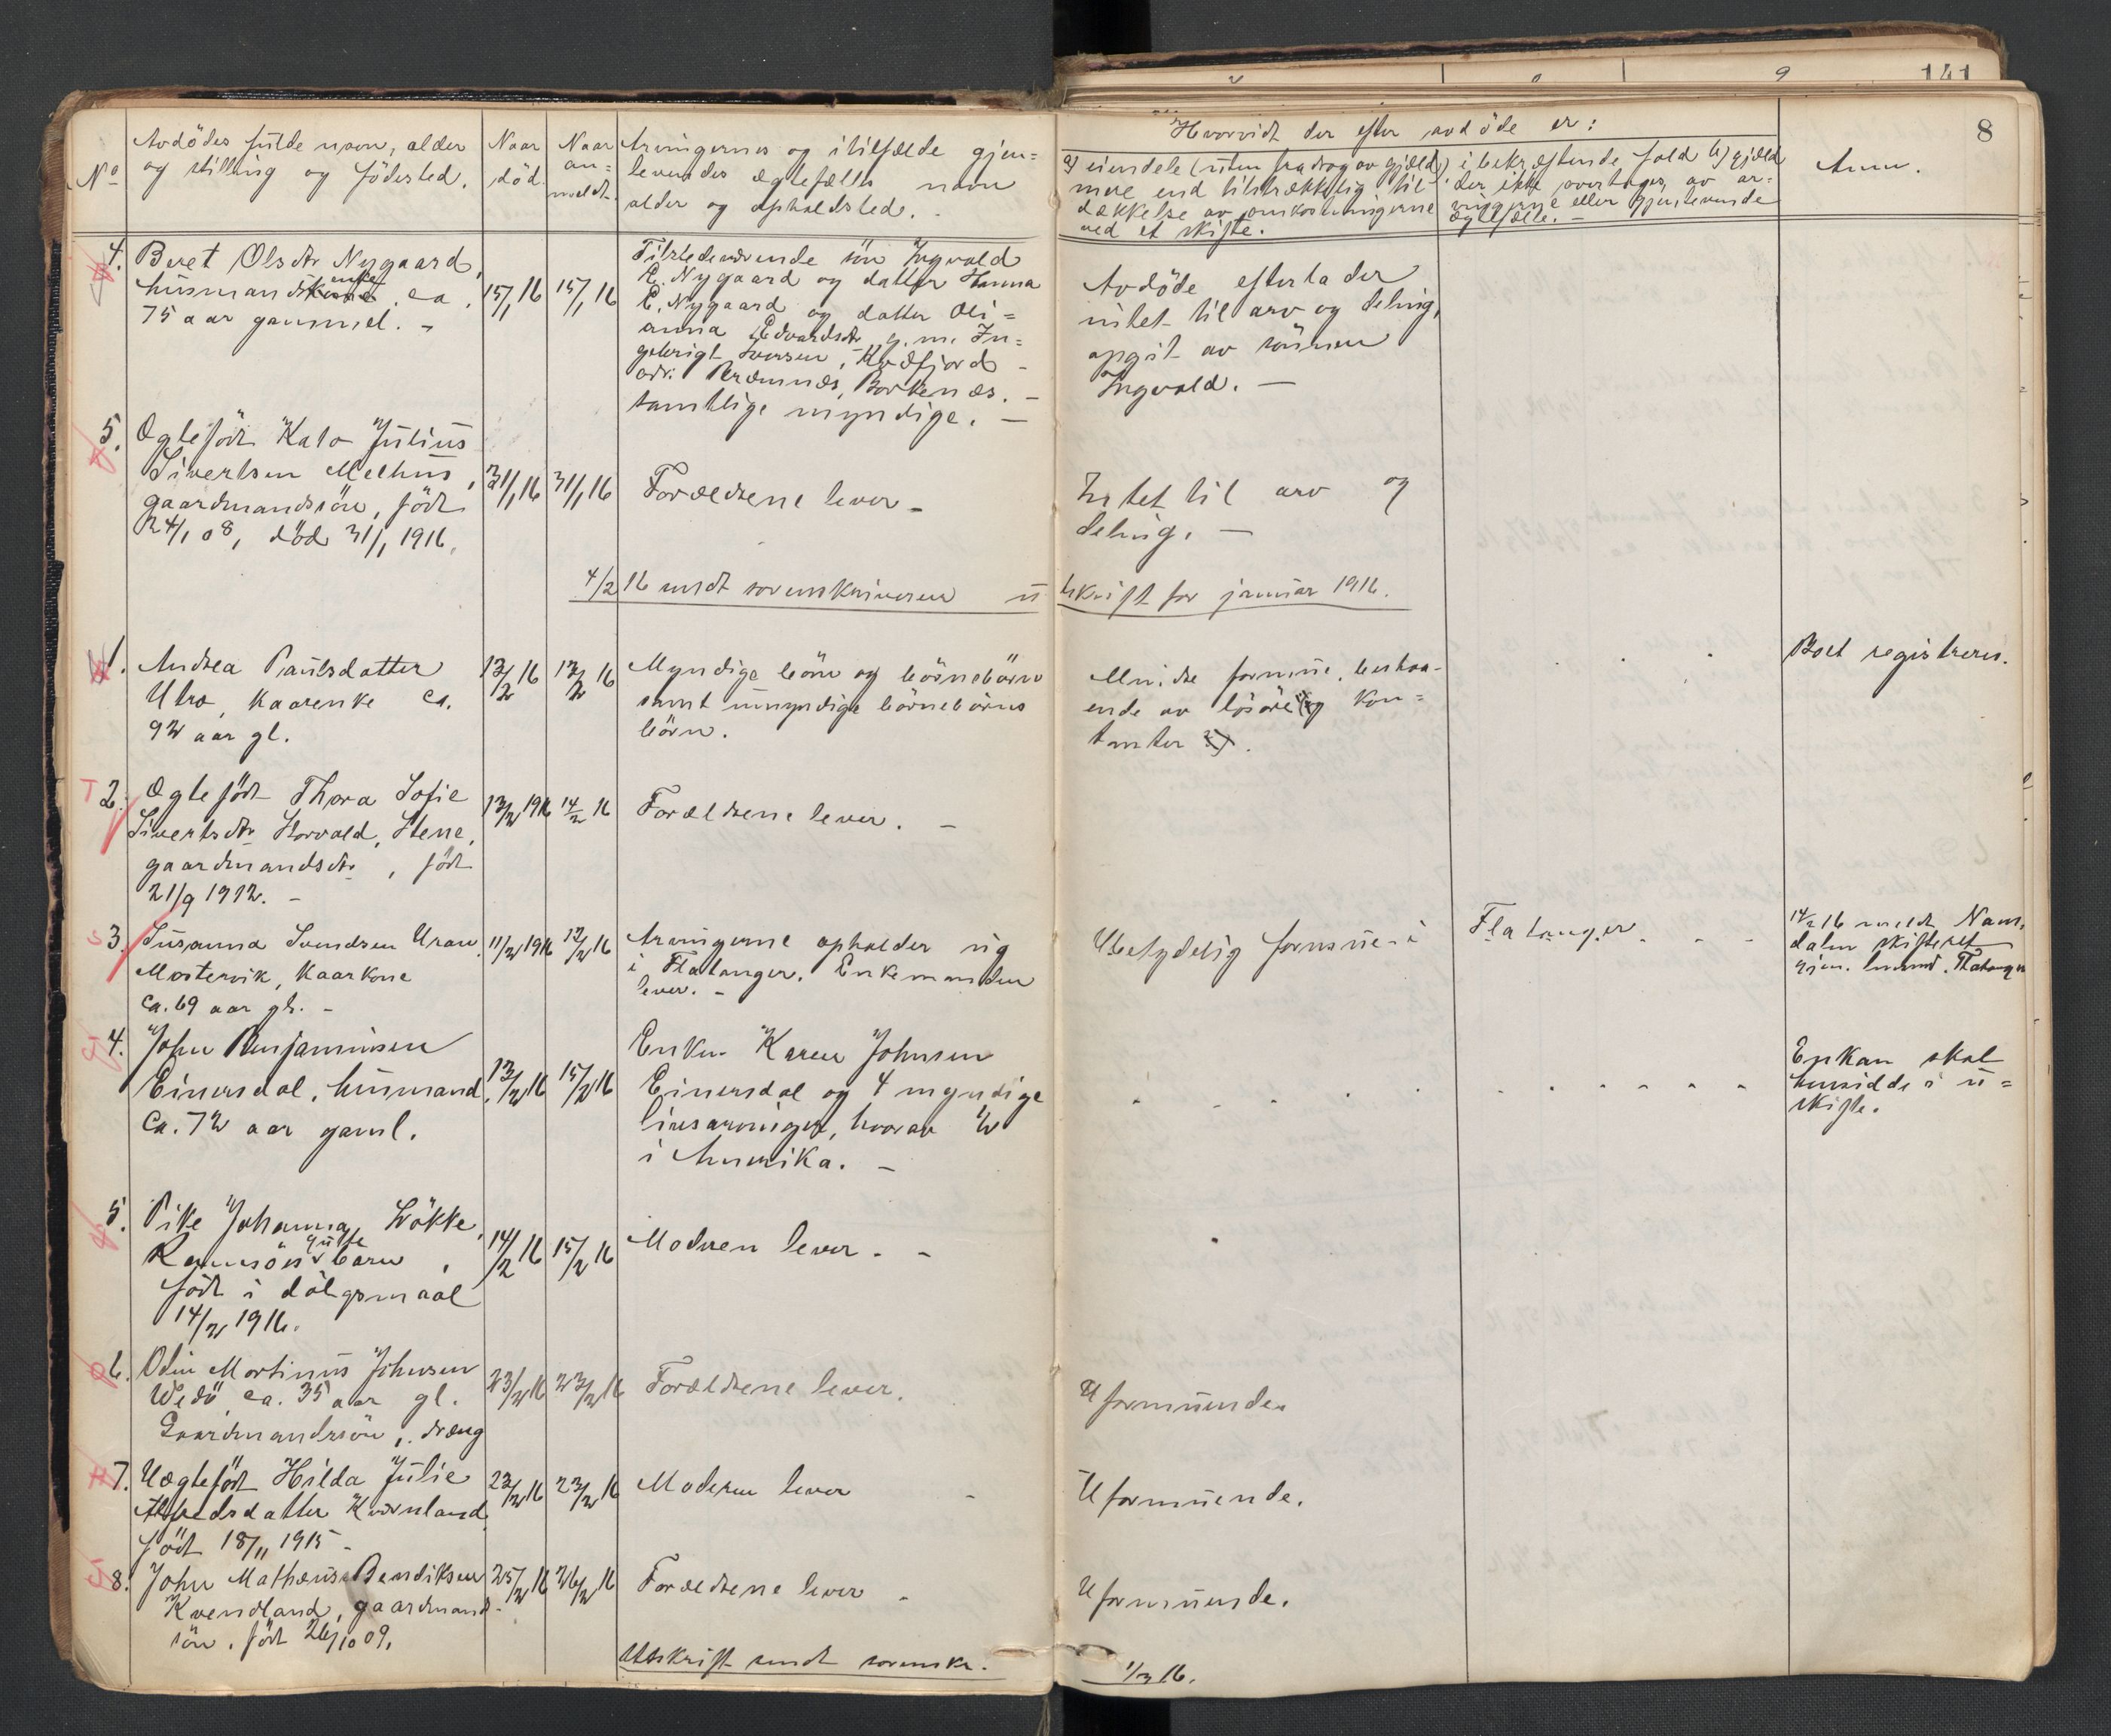 141
8
No
Avdödes fulde navn, alder
og stilling og födested.
Naar
död.
Naar
an=
meldt.
Arvingernes og i tilfælde gjen=
levendes ægtefælles navn
alder og opholdsted.
Hvorvidt der efter avdöde er:
a) eiendele (uten fradrag av gjæld)
mere end tilstrækkelig til
dækkelse av omkostningerne
ved et skifte.
i bekræftende fald b) gjæld
der ikke overtages av ar=
vingerne eller gjenlevende
ægtefælle. -
Anm.
4. Beret Olsdtr Nygaard,
husmandsenke, ca.
75 aar gammel. -
15/1 16
15/1 16
Tilstedeværende sön Ingvald
E. Nygaard og datter Hanna
E. Nygaard og datter Oli=
anna Edvardsdtr g.m. In=
gebrigt Iversen, Kvæfjord -
adr. Bremnes, Borkenes. -
samtlige myndige. -
Avdöde efterlader
intet til arv og deling,
opgit av sönnen
Ingvald. -
5. Ægtefödt Kato Julius
Sivertsen Melhus,
gaardmandssön, födt
24/1 08, död 31/1 1916.
31/1 16
31/1 16
Forældrene lever -
Intet til arv og
deling. -
4/2 16 sendt sorenskriveren utskrift for januar 1916.
1. Andrea Paulsdatter
Utro, Kaarenke ca.
92 aar gl.
12/2 16
12/2 16
Myndige börn og börnebörn
samt umyndige börnebörns
börn.
Mindre formue, bestaa-
ende av lösöre og kon=
tanter.
Boet registreres.
2. Ægtefödt Thora Sofie
Sivertsdtr Horvald, Stene,
gaardmandsdtr, födt
21/9 1912. -
13/2 1916
14/2 16
Forældrene lever. -
3. Susanna Svendsen Uran
Mostervik, Kaarkone
ca. 69 aar gl. -
11/2 1916
12/2 16
Arvingerne opholder sig
i Flatanger. Enkemanden
lever. -
Ubetydelig formue i Flatanger. - -
14/2 16 meldt Nam.
dalen skifteret
gjen. lensmd. Flatanger
4. John Benjaminsen
Einersdal, husmand,
Ca. 72 aar gaml.
13/2 16
15/2 16
Enken Karen Johnsen
Einersdal og 4 myndige
livsarvinger, hvorav 2
i Amerika. -
Enkan skal
hensidde i u=
skifte.
5. Pike Johanna, Lökke,
Ramsöens barn,
födt i dölgsmaal
14/2 1916.
14/2 16
15/2 16
Modren lever. -
6. Odin Martinus Johnsen
Wedö, ca. 35 aar gl.
Gaardmandssön, dræng
23/2 16
23/2 16
Forældrene lever.
Uformuende.
7. Uægtefödt Hilda Julie
Alfredsdatter Kværnland,
födt 18/11 1915 -
23/2 16
23/2 16
Moderen lever -
Uformuende.
8. John Mathæus Bendiksen
Kvendland, gaardmand-
sön, födt 26/10 09.
25/2 16
26/2 16
Forældrene lever -
Uformuende.
Utskrift sendt sorenskr. 1/3 16.